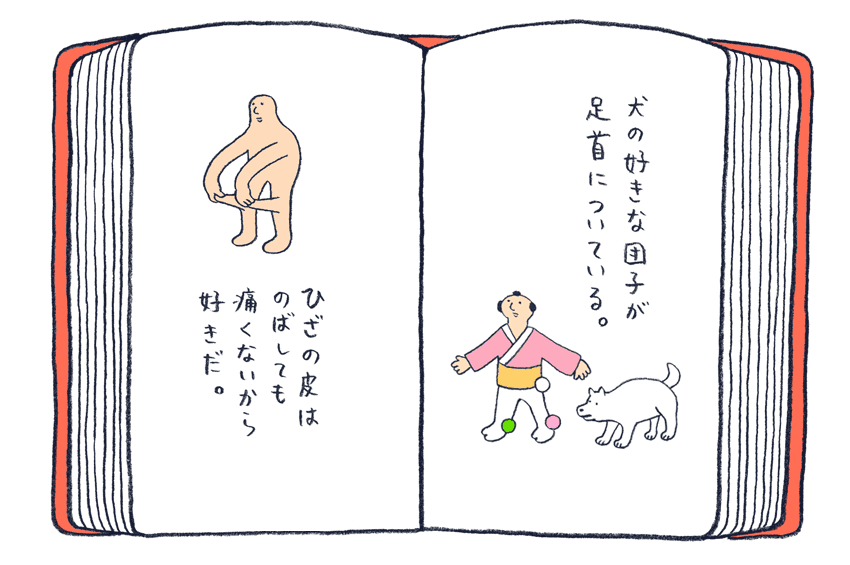 犬の好きな団子が
足首についている。
ひざの皮は
のばしても
痛くないから
好きだ。